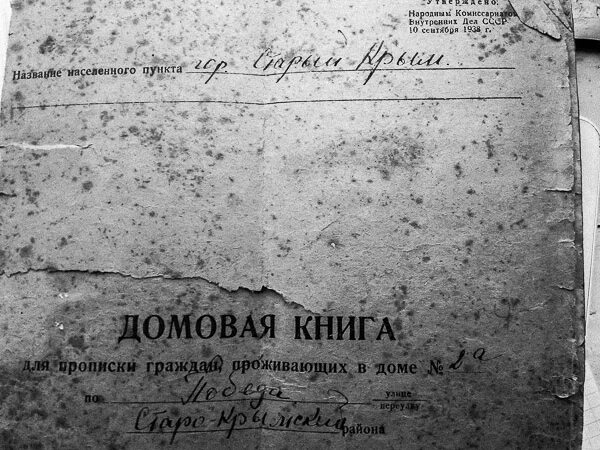 Утверждено:
Народным Комиссариатом
Внутренних Дел СССР
10 сентября 1938 г.
Название населенного пункта гор. Старый Крым.
ДОМОВАЯ КНИГА
для прописки граждан, проживающих в доме № 2а
по Победа улице
переулку
Старо-Крымский района